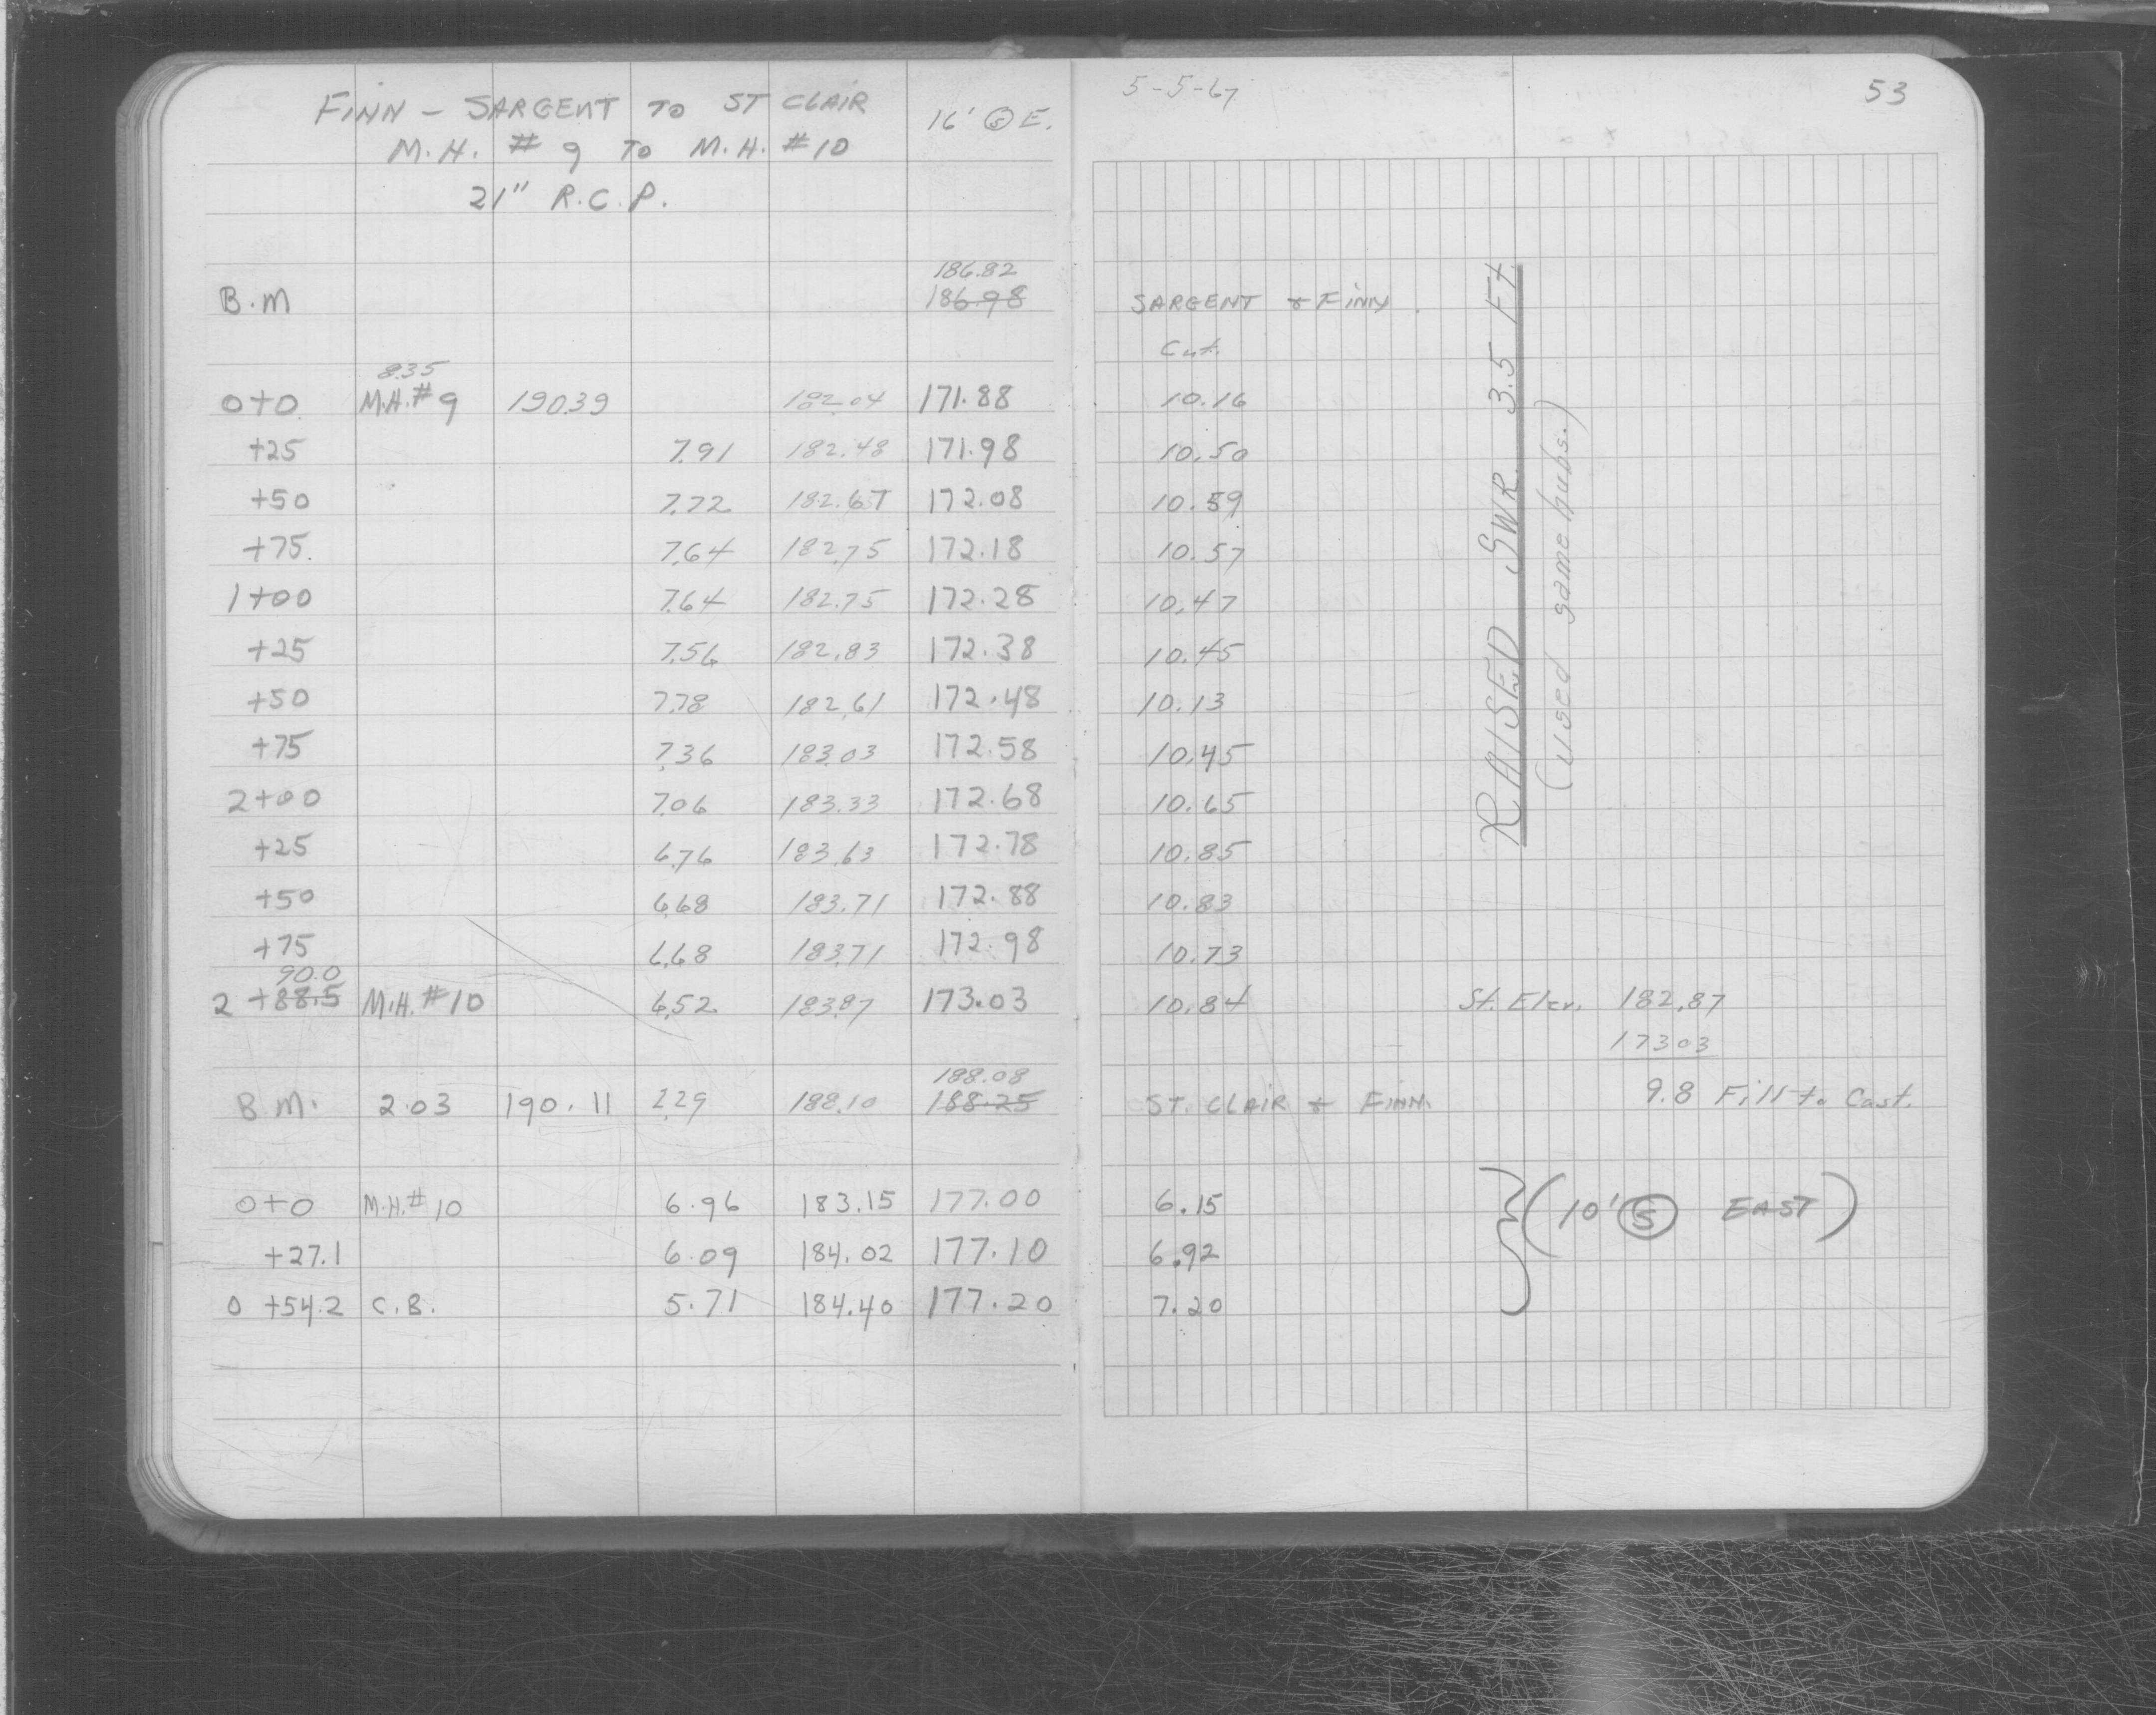 FINN - SARGENT TO ST CLAIR 16' Ⓢ E.
M.H. # 9 TO M.H. #10
21" R.C.P.
186.82
B.M 186.98
8.35
0+0 M.H.#9 190.39 182.04 171.88
+25 7.91 182.48 171.98
+50 7.72 182.67 172.08
+75 7.64 182.75 172.18
1+00 7.64 182.75 172.28
+25 7.56 182.83 172.38
+50 7.78 182.61 172.48
+75 7.36 183.03 172.58
2+00 7.06 183.33 172.68
+25 6.76 183.63 172.78
+50 6.68 183.71 172.88
+75 6.68 183.71 172.98
90.0
2 +88.5 M.H. #10 6.52 183.87 173.03
188.08
B.M. 2.03 190.11 2.29 188.10 188.25
0+0 M.H.# 10 6.96 183.15 177.00
+27.1 6.09 184.02 177.10
0 +54.2 C.B. 5.71 184.40 177.20
5-5-67 53
SARGENT & FINN
Cut.
10.16
10.50
10.59
10.57
10.47
10.45
10.13
10.45
10.65
10.85
10.83
10.73
10.84 St. Elev. 182.87
173.03
ST. CLAIR & FINN. 9.8 Fill to Cast.
6.15 (10' Ⓢ EAST)
6.92
7.20
RAISED SWR. 3.5 Ft
(used same hubs.)